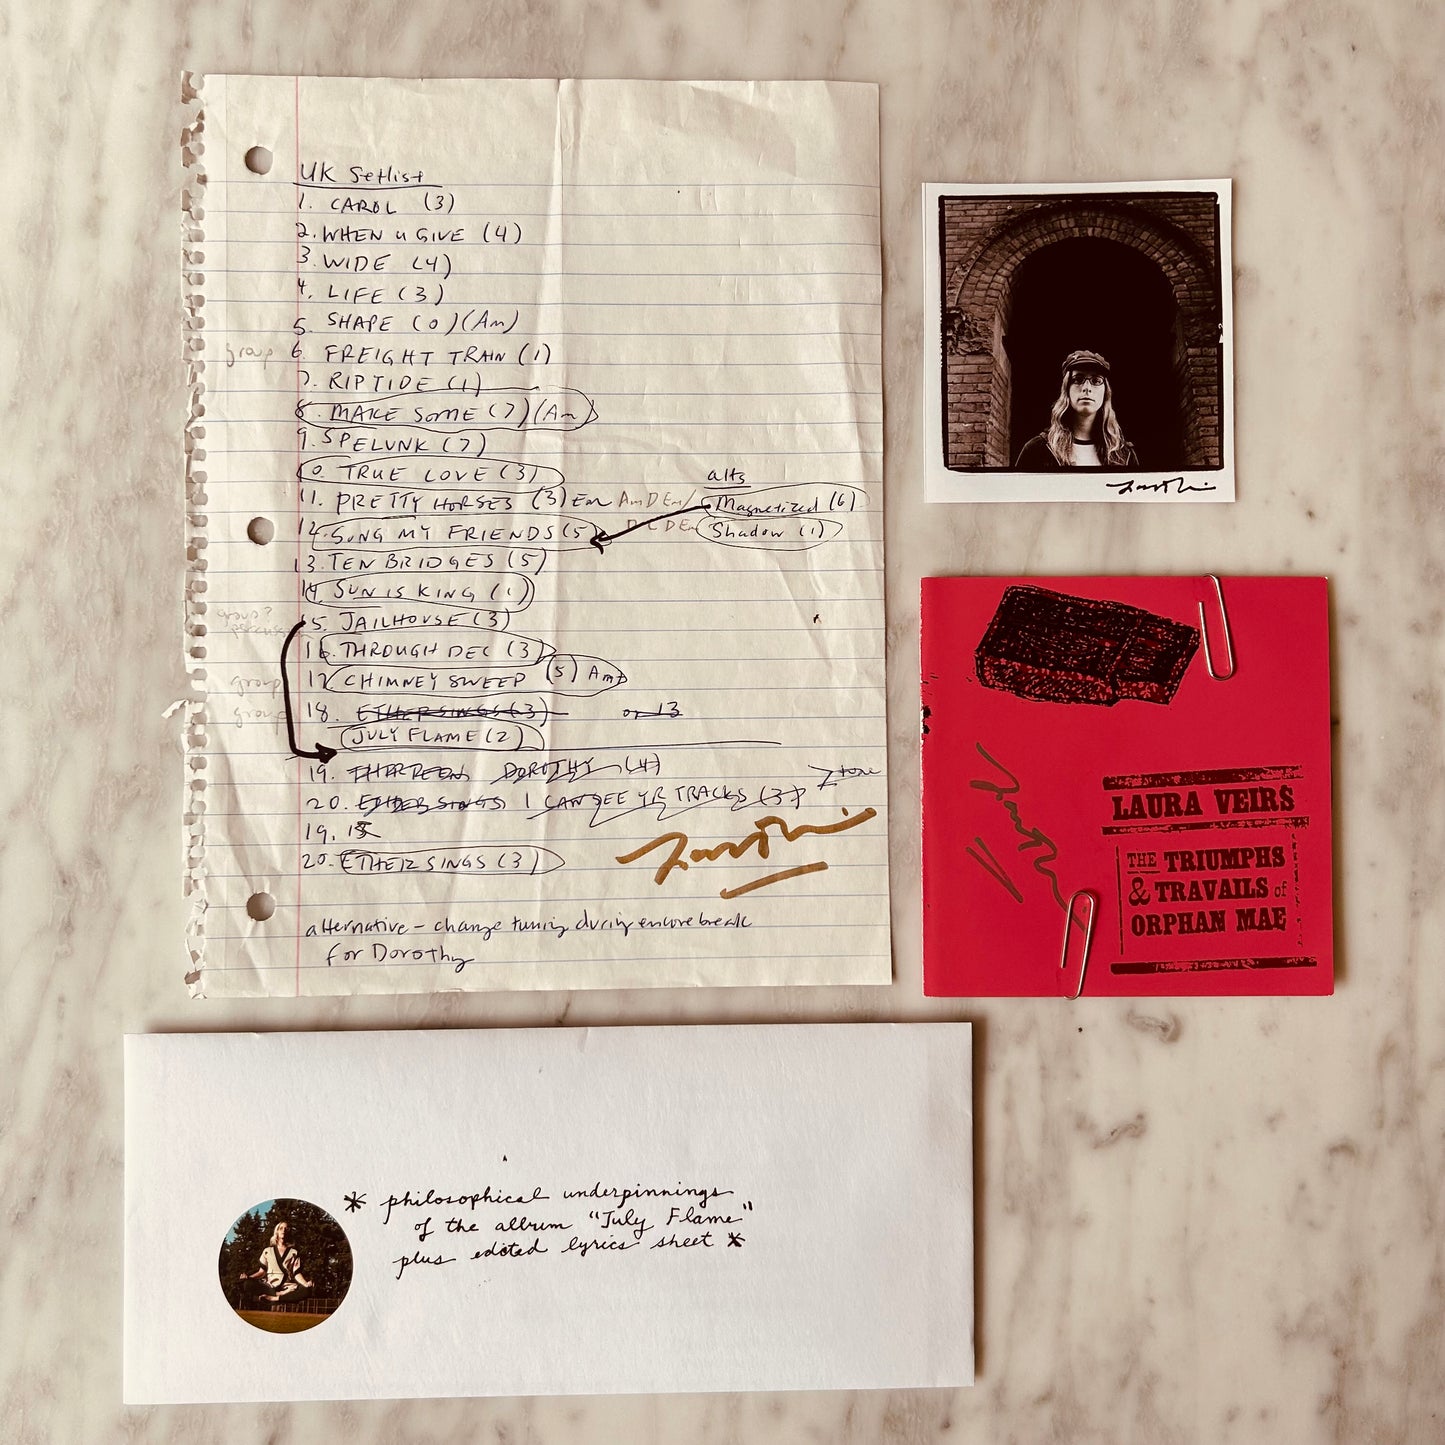 UK Setlist
1. CAROL (3)
2. WHEN U GIVE (4)
3. WIDE (4)
4. LIFE (3)
5. SHAPE (0) (Am)
group 6. FREIGHT TRAIN (1)
7. RIPTIDE (1)
8. MAKE SOME (7) (Am)
9. SPELUNK (7)
10. TRUE LOVE (3)
alts
11. PRETTY HORSES (3) Em Am D Em/
Magnetized (6)
12. SONG MY FRIENDS (5)
D C D Em
Shadow (1)
13. TEN BRIDGES (5)
14. SUN IS KING (1)
group?
15. JAILHOUSE (3)
16. THROUGH DEC (3)
group 17. CHIMNEY SWEEP (5) Am
group 18. ETHER SINGS (3) or 13
JULY FLAME (2)
19. DOROTHY (4)
20. ETHER SINGS I CAN SEE YR TRACKS (3)
19. 15
20. ETHER SINGS (3)
alternative - change tuning during encore break
for Dorothy
LAURA VEIRS
THE TRIUMPHS
& TRAVAILS of
ORPHAN MAE
* philosophical underpinnings
of the album "July Flame"
plus edited lyrics sheet *